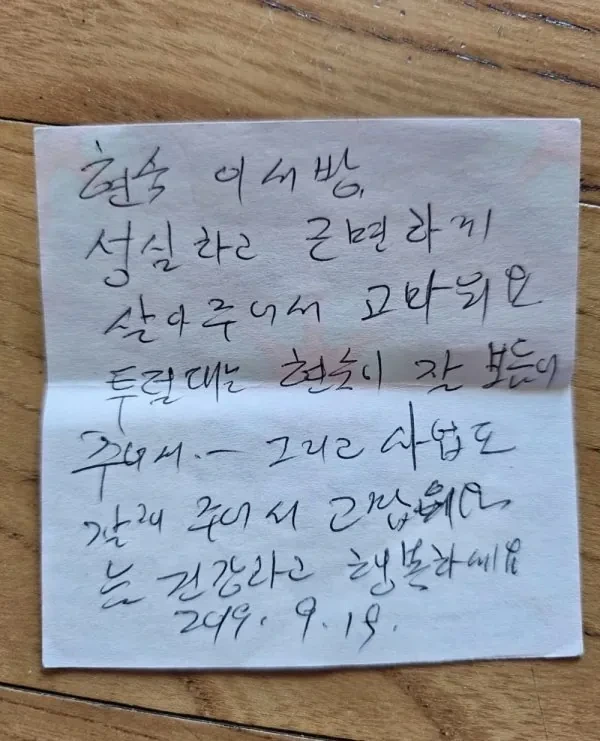 현숙 이서방,
성실하고 근면하게
살아주어서 고마워요
투덜대는 현숙이 잘 보듬어
주어서.— 그리고 사업도
잘해 주어서 고맙
는 건강하고 행복하세요
2019. 9. 19.